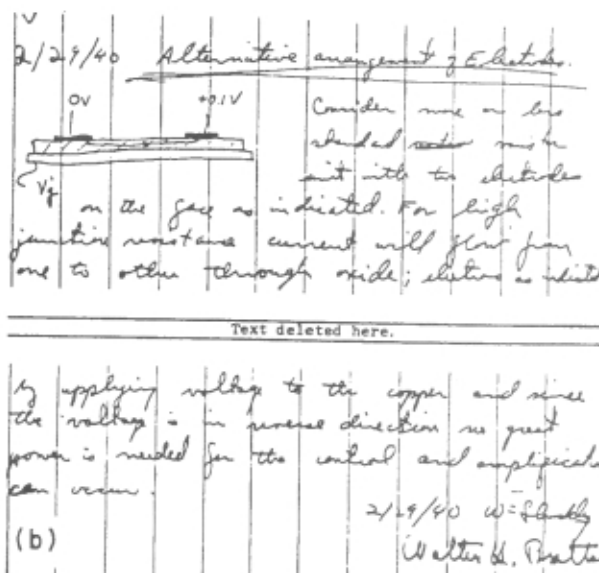 2/29/40 Alternative arrangement of Electrodes.
0V +0.1V
Consider more or less
standard
unit with two electrodes
Vj
on the face as indicated. For high
junction resistance current will flow from
one to other through oxide; electrons as indicated
Text deleted here.
by applying voltage to the copper and since
the voltage is in reverse direction no great
power is needed for the control and amplification
can occur.
2/29/40 W Shockley
(b)
Walter H. Bratta